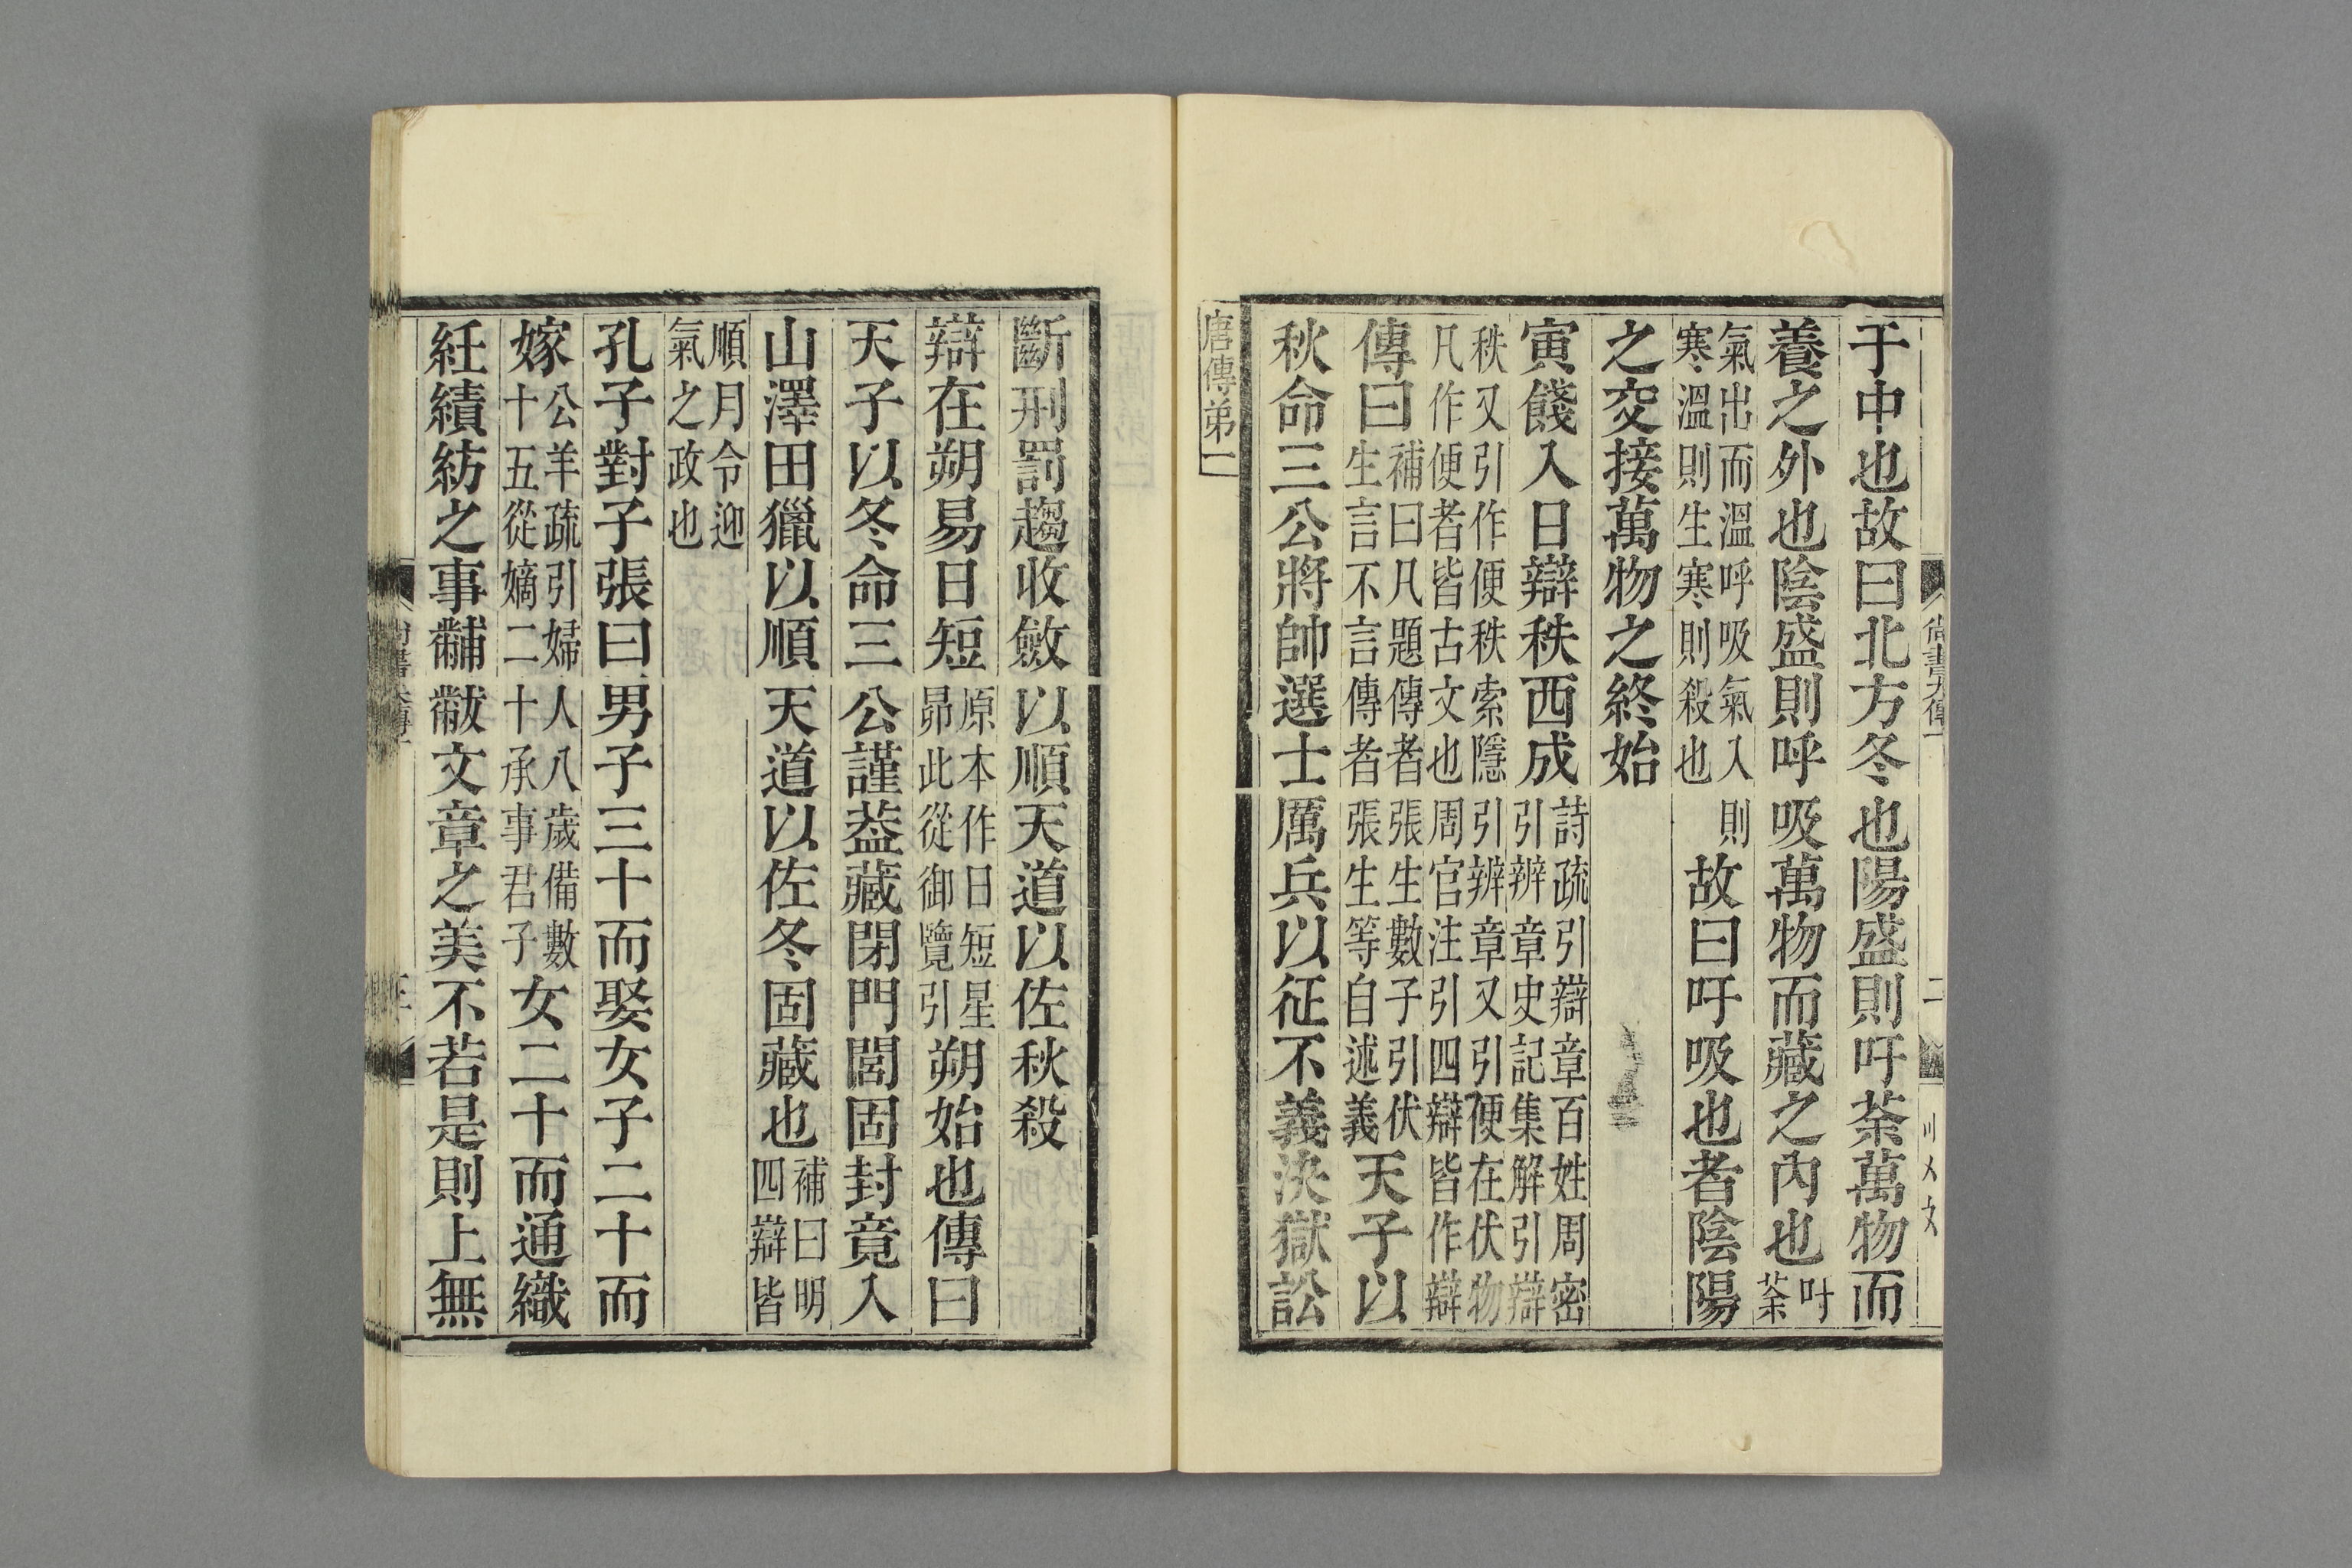 于中也故曰北方冬也陽盛則吁荼萬物而
養之外也陰盛則呼吸萬物而藏之內也吁荼
氣出而溫呼吸氣入則寒溫則生寒則殺也故曰吁吸也者陰陽
之交接萬物之終始
寅餞入日辯秩西成詩疏引辯章百姓周密引辨章史記集解引辯
秩又引作便秩索隱引辨章又引便在伏物凡作便者皆古文也周官注引四辯皆作辯
傳曰補曰凡題傳者張生數子引伏生言不言傳者張生等自述義天子以
秋命三公將帥選士厲兵以征不義決獄訟
唐傳弟一
尚書大傳一
二
斷刑罰趨收斂以順天道以佐秋殺
辯在朔易日短原本作日短星昴此從御覽引朔始也傳曰
天子以冬命三公謹葢藏閉門閭固封竟入
山澤田獵以順天道以佐冬固藏也補曰明四辯皆
順月令迎氣之政也
孔子對子張曰男子三十而娶女子二十而
嫁公羊疏引婦人八歲備數十五從嫡二十承事君子女二十而通織
紝績紡之事黼黻文章之美不若是則上無